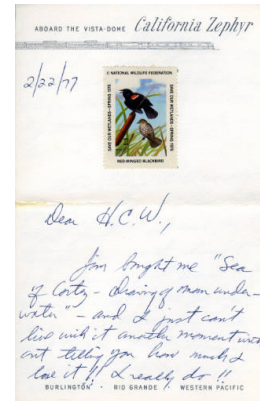 ABOARD THE VISTA-DOME California Zephyr
2/22/77
© NATIONAL WILDLIFE FEDERATION
SAVE OUR WETLANDS-SPRING 1976
SAVE OUR WETLANDS-SPRING 1976
RED-WINGED BLACKBIRD
Dear H.C.W.,
Jim bought me "Sea
of Cortez - drawing of man under-
water" - and I just can't
live with it another moment with
out telling you how much I
love it!! I really do!!
BURLINGTON · RIO GRANDE · WESTERN PACIFIC